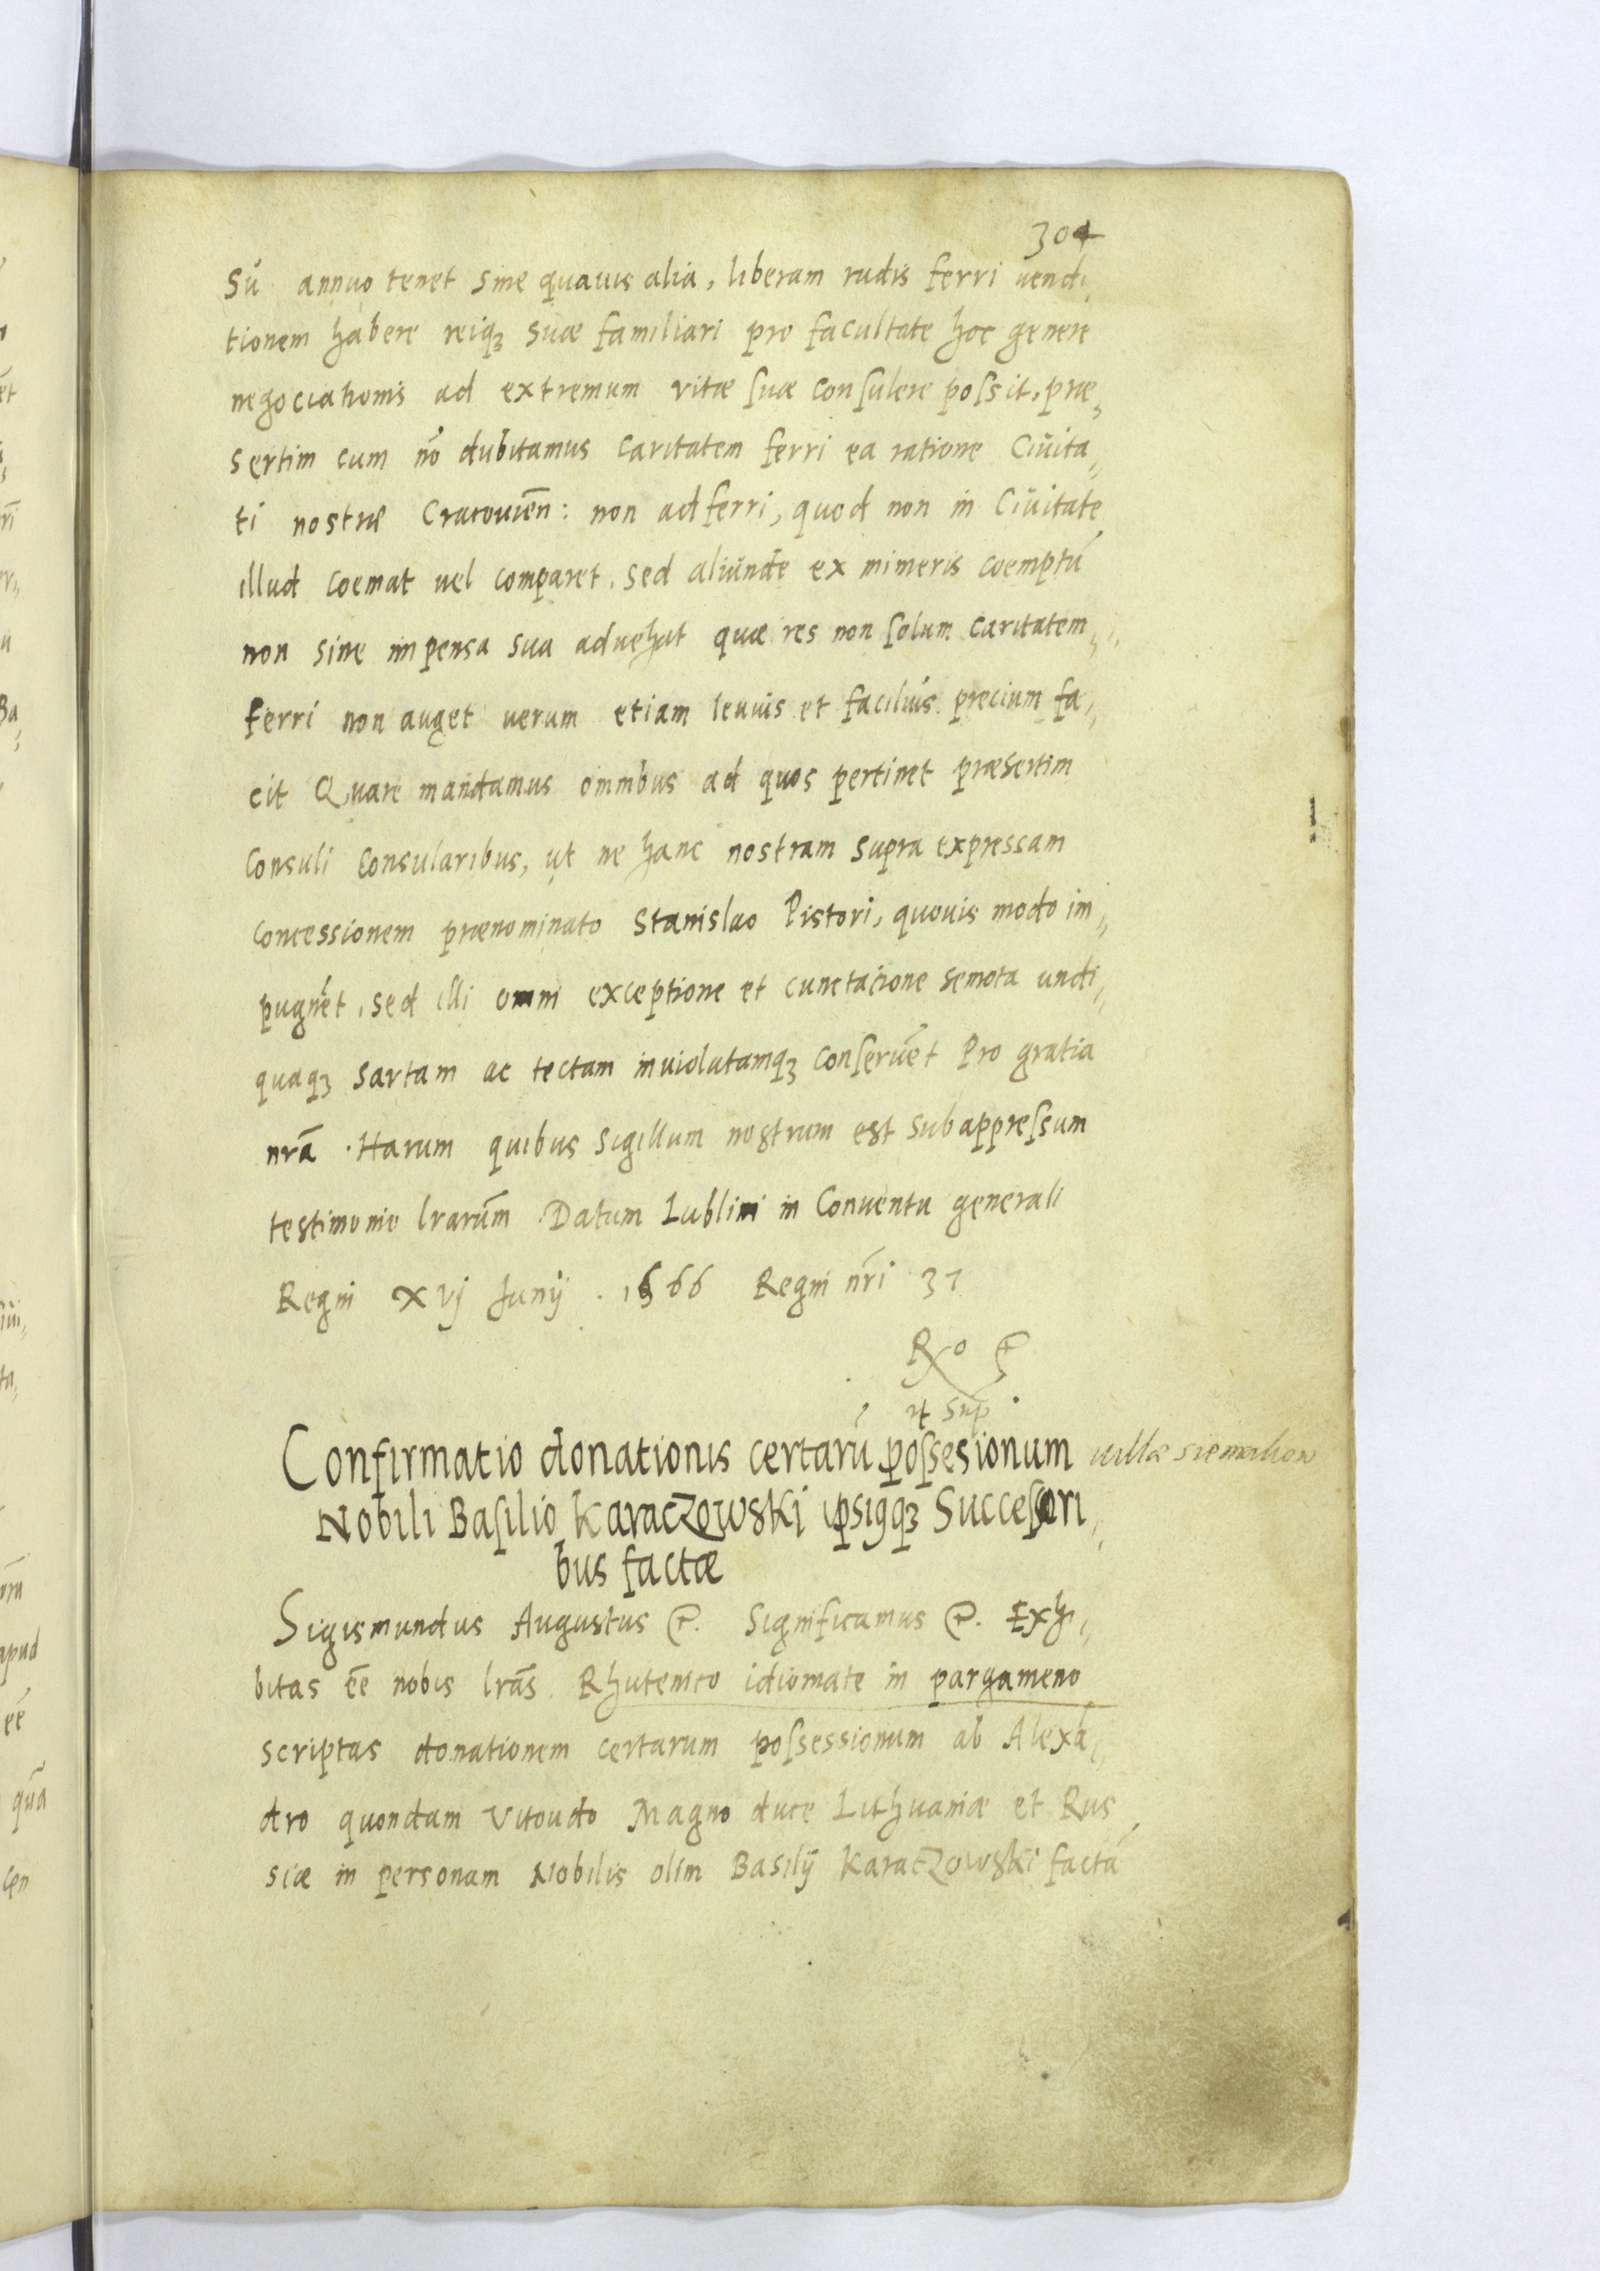 304
Sũ annuo tenet sine quauis alia, liberam rudis ferri uendi
tionem habere reiqꝫ suæ familiari pro facultate hoc genere
negociationis ad extremum vitæ ſuæ conſulere poſsit, præ„
sertim cum nõ dubitamus caritatem ferri ea ratione Ciuita„
ti nostræ Cracouieñ: non adferri, quod non in Ciuitate
illud coemat uel comparet, sed aliunde ex mineris coemptũ
non sine impensa sua aduehat quæ res non ſolum caritatem„
ferri non auget uerum etiam leuius et facilius precium fa„
cit Quare mandamus omnibus ad quos pertinet præsertim
Consuli Consularibus, ut ne hanc nostram supra expressam
concessionem prænominato Stanislao Pistori, quouis modo im„
pugnẽt, sed illi omni exceptione et cunctacione semota undi„
quaqꝫ sartam ac tectam inuiolatamqꝫ conſeruẽt Pro gratia
nrã. Harum quibus sigillum nostrum est subappreſsum
testimonio lrarũm. Datum Lublini in Conuentu generali
Regni xvj Junij. 1566 Regni nr̃i 37
ut sup
Confirmatio donationis certarũ poſsesionum
uillæ
Nobili Baſilio Karaczowskj ipsiqꝫ Succeſori„
bus factæ
Sigismundus Augustus &. Significamus &. Exhi„
bitas ẽe nobis lrãs Rhutenico idiomate in pargameno
scriptas donationem certarum poſsessionum ab Alexã„
dro quondam Vitoudo Magno duce Lithuaniæ et Rus„
siæ in personam Nobilis olim Basilij Karaczowski factã